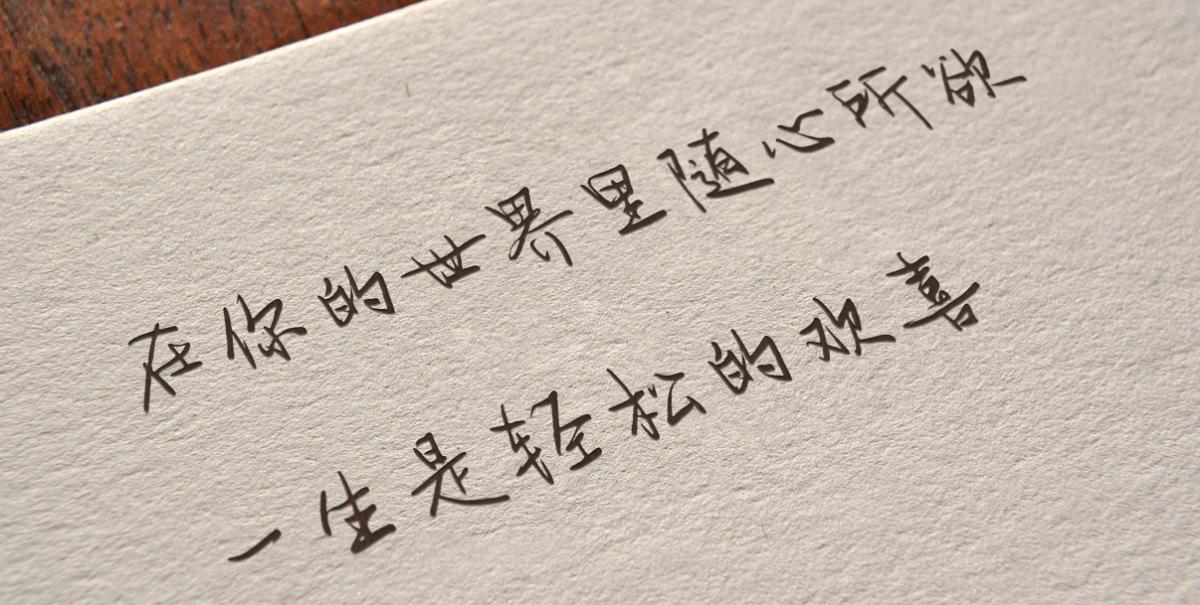 在你的世界里随心所欲
一生是轻松的欢喜